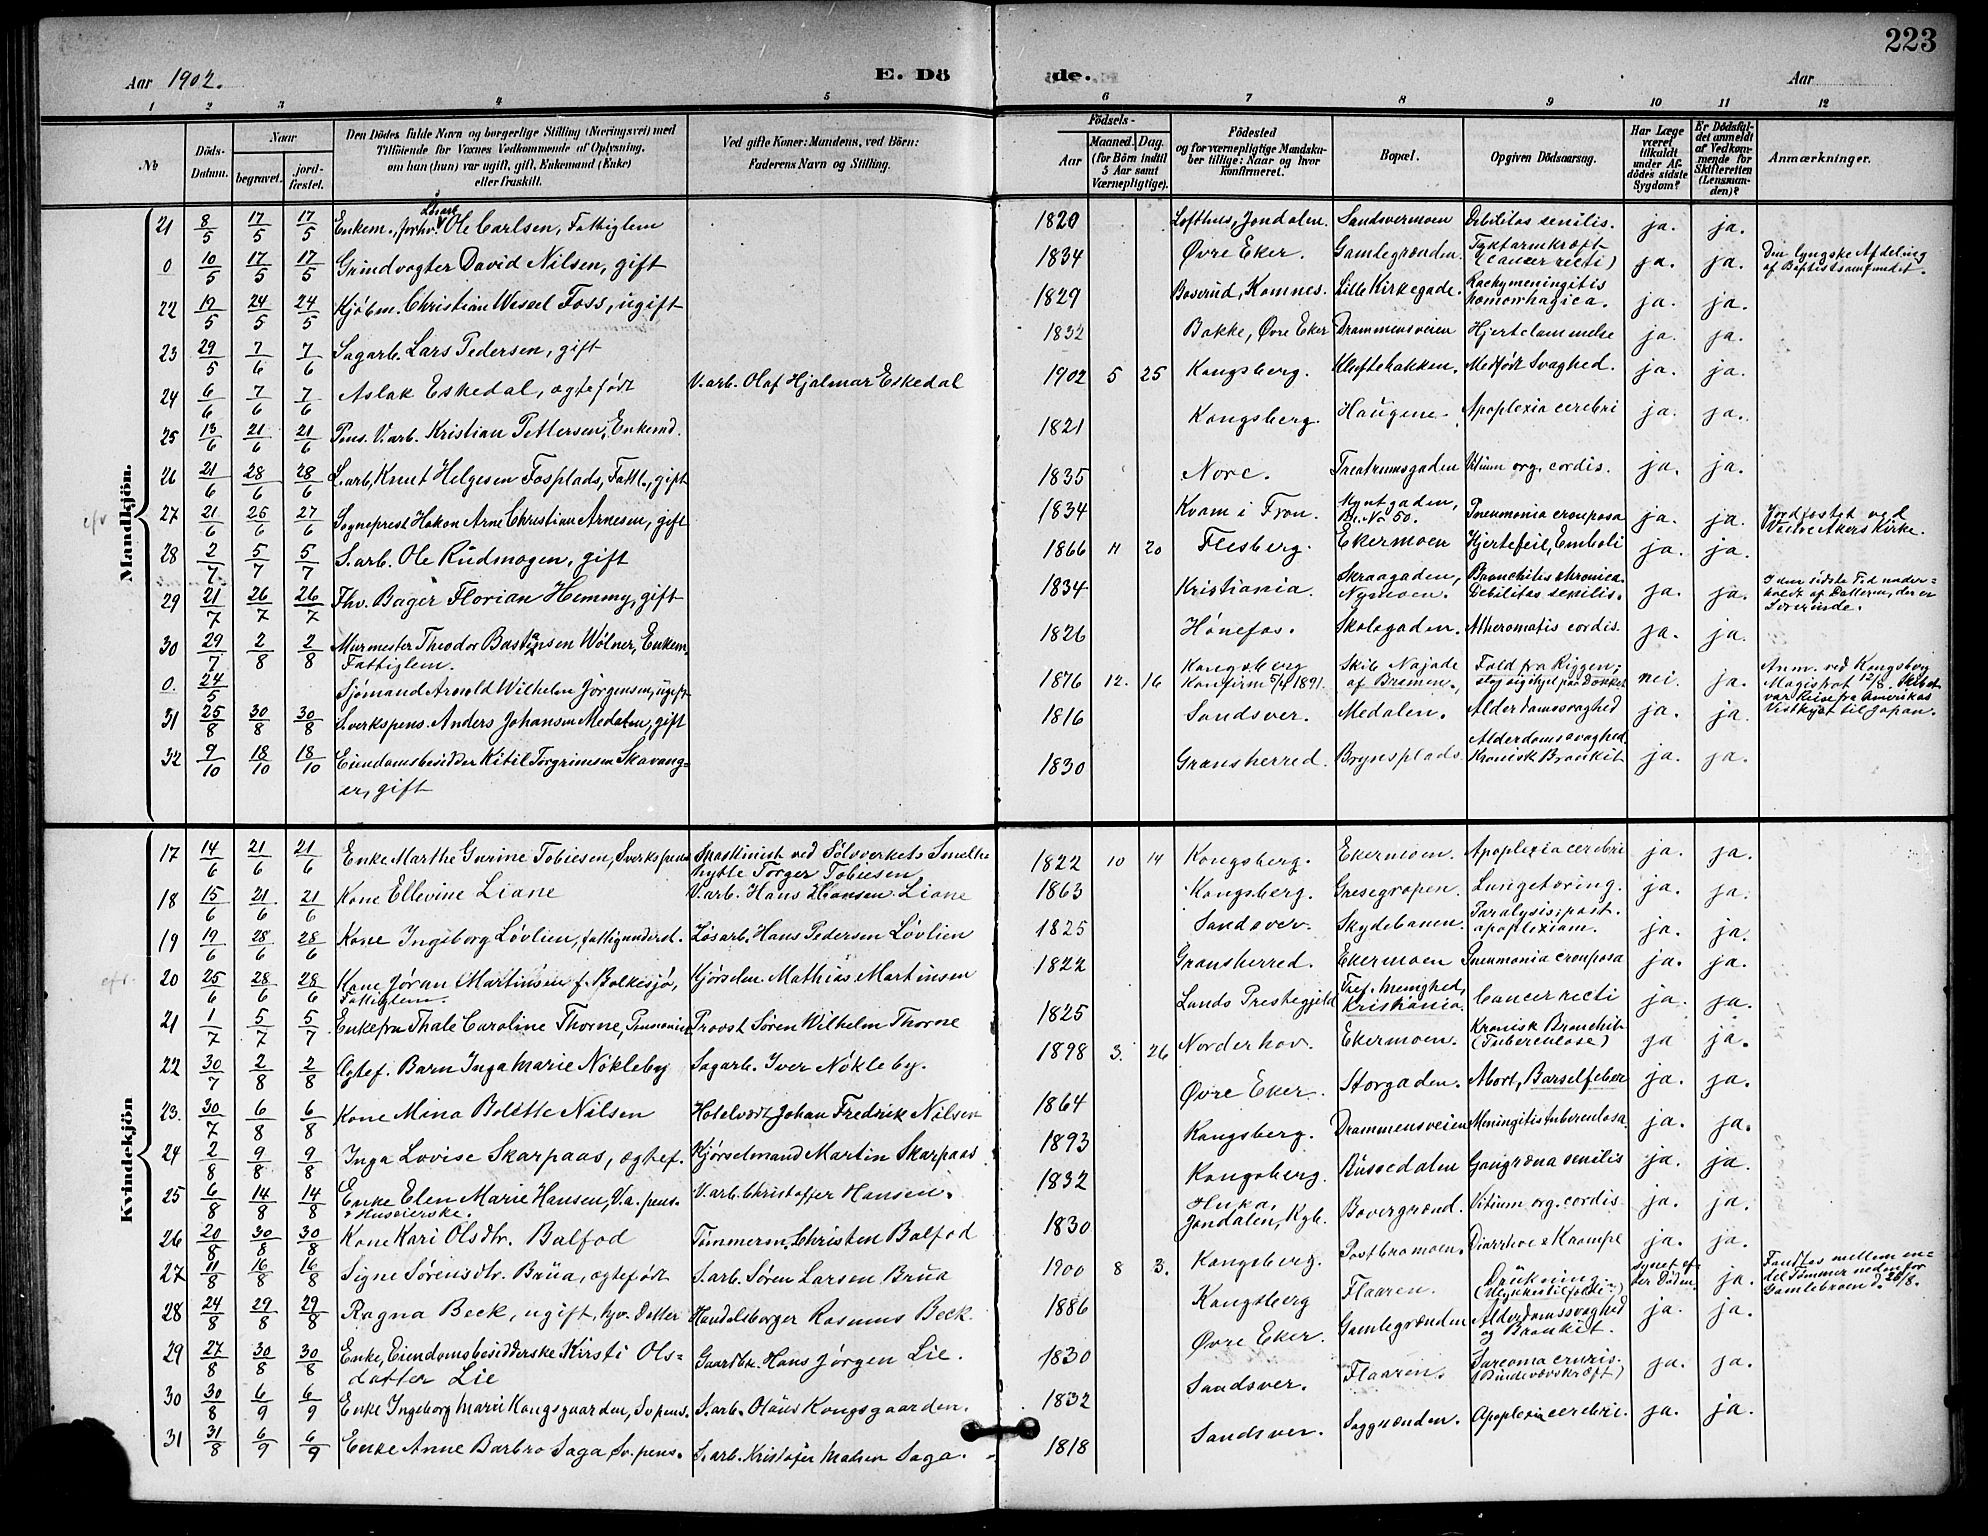 223
Aar 1902. E. Dö de. Aar
1 2 3 4 5 6 7 8 9 10 11 12
№
Döds-Datum.
Naar
begravet.
jord-fæstet.
Den Dödes fulde Navn og borgerlige Stilling (Næringsvei) med
Tilföiende for Voxnes Vedkommende af Oplysning,
om han (hun) var ugift, gift, Enkemand (Enke)
eller fraskilt.
Ved gifte Koner: Mandens, ved Börn:
Faderens Navn og Stilling.
Födsels-
Aar
Maaned. Dag.
(for Börn indtil 5 Aar samt Værnepligtige).
Födested
og for værnepligtige Mandska-
ber tillige: Naar og hvor
konfirmeret.
Bopæl.
Opgiven Dödsaarsag.
Har Læge været tilkaldt under Afdödes sidste Sygdom?
Er Dödsfaldet anmeldt af Vedkommende for Skifteretten (Lensmanden)?
Anmærkninger.
Mandkjön.
21 8/5 17/5 17/5 Enkem., forhv. Løsarb. Ole Carlsen, Fattiglem 1820 Lofthus, Jondalen. Sandsvermoen Debilitas senilis. ja. ja.
0 10/5 17/5 17/5 Grindvogter David Nilsen, gift 1834 Øvre Eker. Gamlegrænden. Tyktarmkræft (Cancer recti) ja. ja. Den lyngske Afdeling af Baptistsamfundet.
22 19/5 24/5 24/5 Kjøbm. Christian Wessel Foss, ugift 1829 Boserud, Komnes. Lille Kirkegade. Pachymeningitis hæmorrhagica. ja. ja.
23 29/5 7/6 7/6 Sagarb. Lars Pedersen, gift 1832 Bakke, Øvre Eker Drammensveien Hjertelammelse ja. ja.
24 6/6 7/6 7/6 Aslak Eskedal, ægtefødt V. arb. Olaf Hjalmar Eskedal 1902 5 25 Kongsberg. Kleftebakken. Medfødt Svaghed. ja. ja.
25 13/6 21/6 21/6 Pens. V. arb. Kristian Pettersen, Enkemd. 1821 Kongsberg. Haugene. Apoplexia cerebri ja. ja.
26 21/6 28/6 28/6 S. arb. Knut Helgesen Fosplads, Fattl., gift 1835 Nore. Treatrumsgaden Vitium org. cordis. ja. ja.
27 21/6 26/6 27/6 Sogneprest Hakon Arne Christian Arnesen, gift 1834 Kvam i Fron. Myntgaden, Br. No 50. Pneumonia crouposa ja. ja. Jordfæstet ved Vestre Akers Kirke.
28 2/7 5/7 5/7 S. arb. Ole Rudmogen, gift 1866 11 20 Flesberg. Ekermoen Hjertefeil, Emboli ja. ja.
29 21/7 26/7 26/7 Fhv. Bager Florian Hemmy, gift 1834 Kristiania. Skraagaden, Nymoen. Bronchitis chronica. Debilitas senilis. ja. ja. I den sidste Tid underholdt af Datteren, der er Lærerinde.
30 29/7 2/8 2/8 Murmester Theodor Bastiansen Wölner, Enkem. Fattiglem. 1826 Hønefos. Skolegaden. Atheromatis cordis. ja. ja.
0. 24/5 Sjömand Arnold Wilhelm Jörgensen, ugift 1876 12. 16 Kongsberg Konfirm 5/4 1891. Skib Najade af Bremen. Fald fra Riggen; slog sig ihjel paa Dækket nei. ja. Anm. ved Kongsberg Magistrat 12/8. Skibet var Reise fra Amerikas Vestkyst til Japan.
31 25/8 30/8 30/8 S. verkspens. Anders Johansen Medalen, gift 1816 Sandsver. Medalen. Alderdomssvaghed ja. ja.
32 9/10 18/10 18/10 Eiendomsbesidder Kitil Torgrimsen Skavanger, gift 1830 Gransherred. Brynsplads. Alderdomssvaghed. Kronisk Bronkit ja. ja.
Kvindekjön
17 14/6 21/6 21/6 Enke Marthe Gurine Tobiesen, Sverkspens. Maskinist ved Sølvverkets Smeltehytte Torger Tobiesen 1822 10 14 Kongsberg. Ekermoen. Apoplexia cerebri ja. ja.
18 15/6 21/6 21/6 Kone Ellevine Liane V. arb. Hans Hansen Liane 1863 Kongsberg. Gresegropen. Lungetæring. ja. ja.
19 19/6 28/6 28/6 Kone Ingeborg Løvlien, fattigunderst. Løsarb. Hans Pedersen Løvlien 1825 Sandsver. Skydebanen. Paralysis, post. apoplexiam. ja. ja.
20 25/6 28/6 28/6 Kone Jøran Martinsen f. Bolkesjø, Fattiglem. Kjørselm. Mathias Martinsen 1822 Gransherred. Ekermoen Pneumonia crouposa ja. ja.
21 1/7 5/7 5/7 Enkefru Thale Caroline Thorne, Pensionist Provst Søren Wilhelm Thorne 1825 Lands Prestegjeld Tref. Menighed, Kristiania. Cancer recti ja. ja.
22 30/7 2/8 2/8 Ægtef. Barn Inga Marie Nökleby Sagarb. Iver Nökleby. 1898 3. 26 Norderhov. Ekermoen. Kronisk Bronchit (Tuberculose) ja ja.
23. 30/7 6/8 6/8 Kone Mina Bolette Nilsen Hotelvært Johan Fredrik Nilsen 1864 Øvre Eker. Storgaden. Abort, Barselfeber ja. ja.
24 2/8 9/8 9/8 Inga Lovise Skarpaas, ægtef. Kjørselmand Martin Skarpaas 1893 Kongsberg. Drammensveien Meningitis tuberculosa. ja. ja.
25 6/8 14/8 14/8 Enke Elen Marie Hansen, V. a. pens. Huseierske. V. arb. Christoffer Hansen. 1832 Kongsberg. Bussedalen Gangræna senilis ja. ja.
26 20/8 30/8 30/8 Kone Kari Olsdtr. Balfod Tømmerm. Christen Balfod 1830 Jondalen, Kgb. Bævergrænd. Vitium org. cordis ja. ja.
27 11/8 16/8 16/8 Signe Sørensdtr. Brua, ægtefødt S. arb. Søren Larsen Brua 1900 8 3. Kongsberg. Postbromoen. Diarrhoe & Krampe ja. ja.
28 24/8 29/8 29/8 Ragna Beck, ugift, hjv. Datter Handelsborger Rasmus Beck. 1886 Kongsberg Flaaren. Drukning (Ulykkestilfælde) synet efter Døden ja. Fandtes mellem endel Tømmer nedenfor Gamlebroen d. 26/8.
29 27/8 30/8 30/8 Enke, Eiendomsbesidderske Kirsti Olsdatter Lie Gaardbr. Hans Jørgen Lie. 1830 Øvre Eker. Gamlegrænden Alderdomssvaghed og Bronkit. ja. ja.
30 30/8 6/9 6/9 Enke Ingeborg Marie Kongsgaarden, Sv pens. S. arb. Olaus Kongsgaarden. 1832 Sandsver. Flaaren. Sarcoma cruris. (Bindevævskræft) ja. ja.
31 31/8 6/9 6/9 Enke Anne Barbro Saga Sv. pens. S. arb. Kristofer Madsen Saga. 1818 Sandsver. Saggrænden. Apoplexia cerebri. ja. ja.